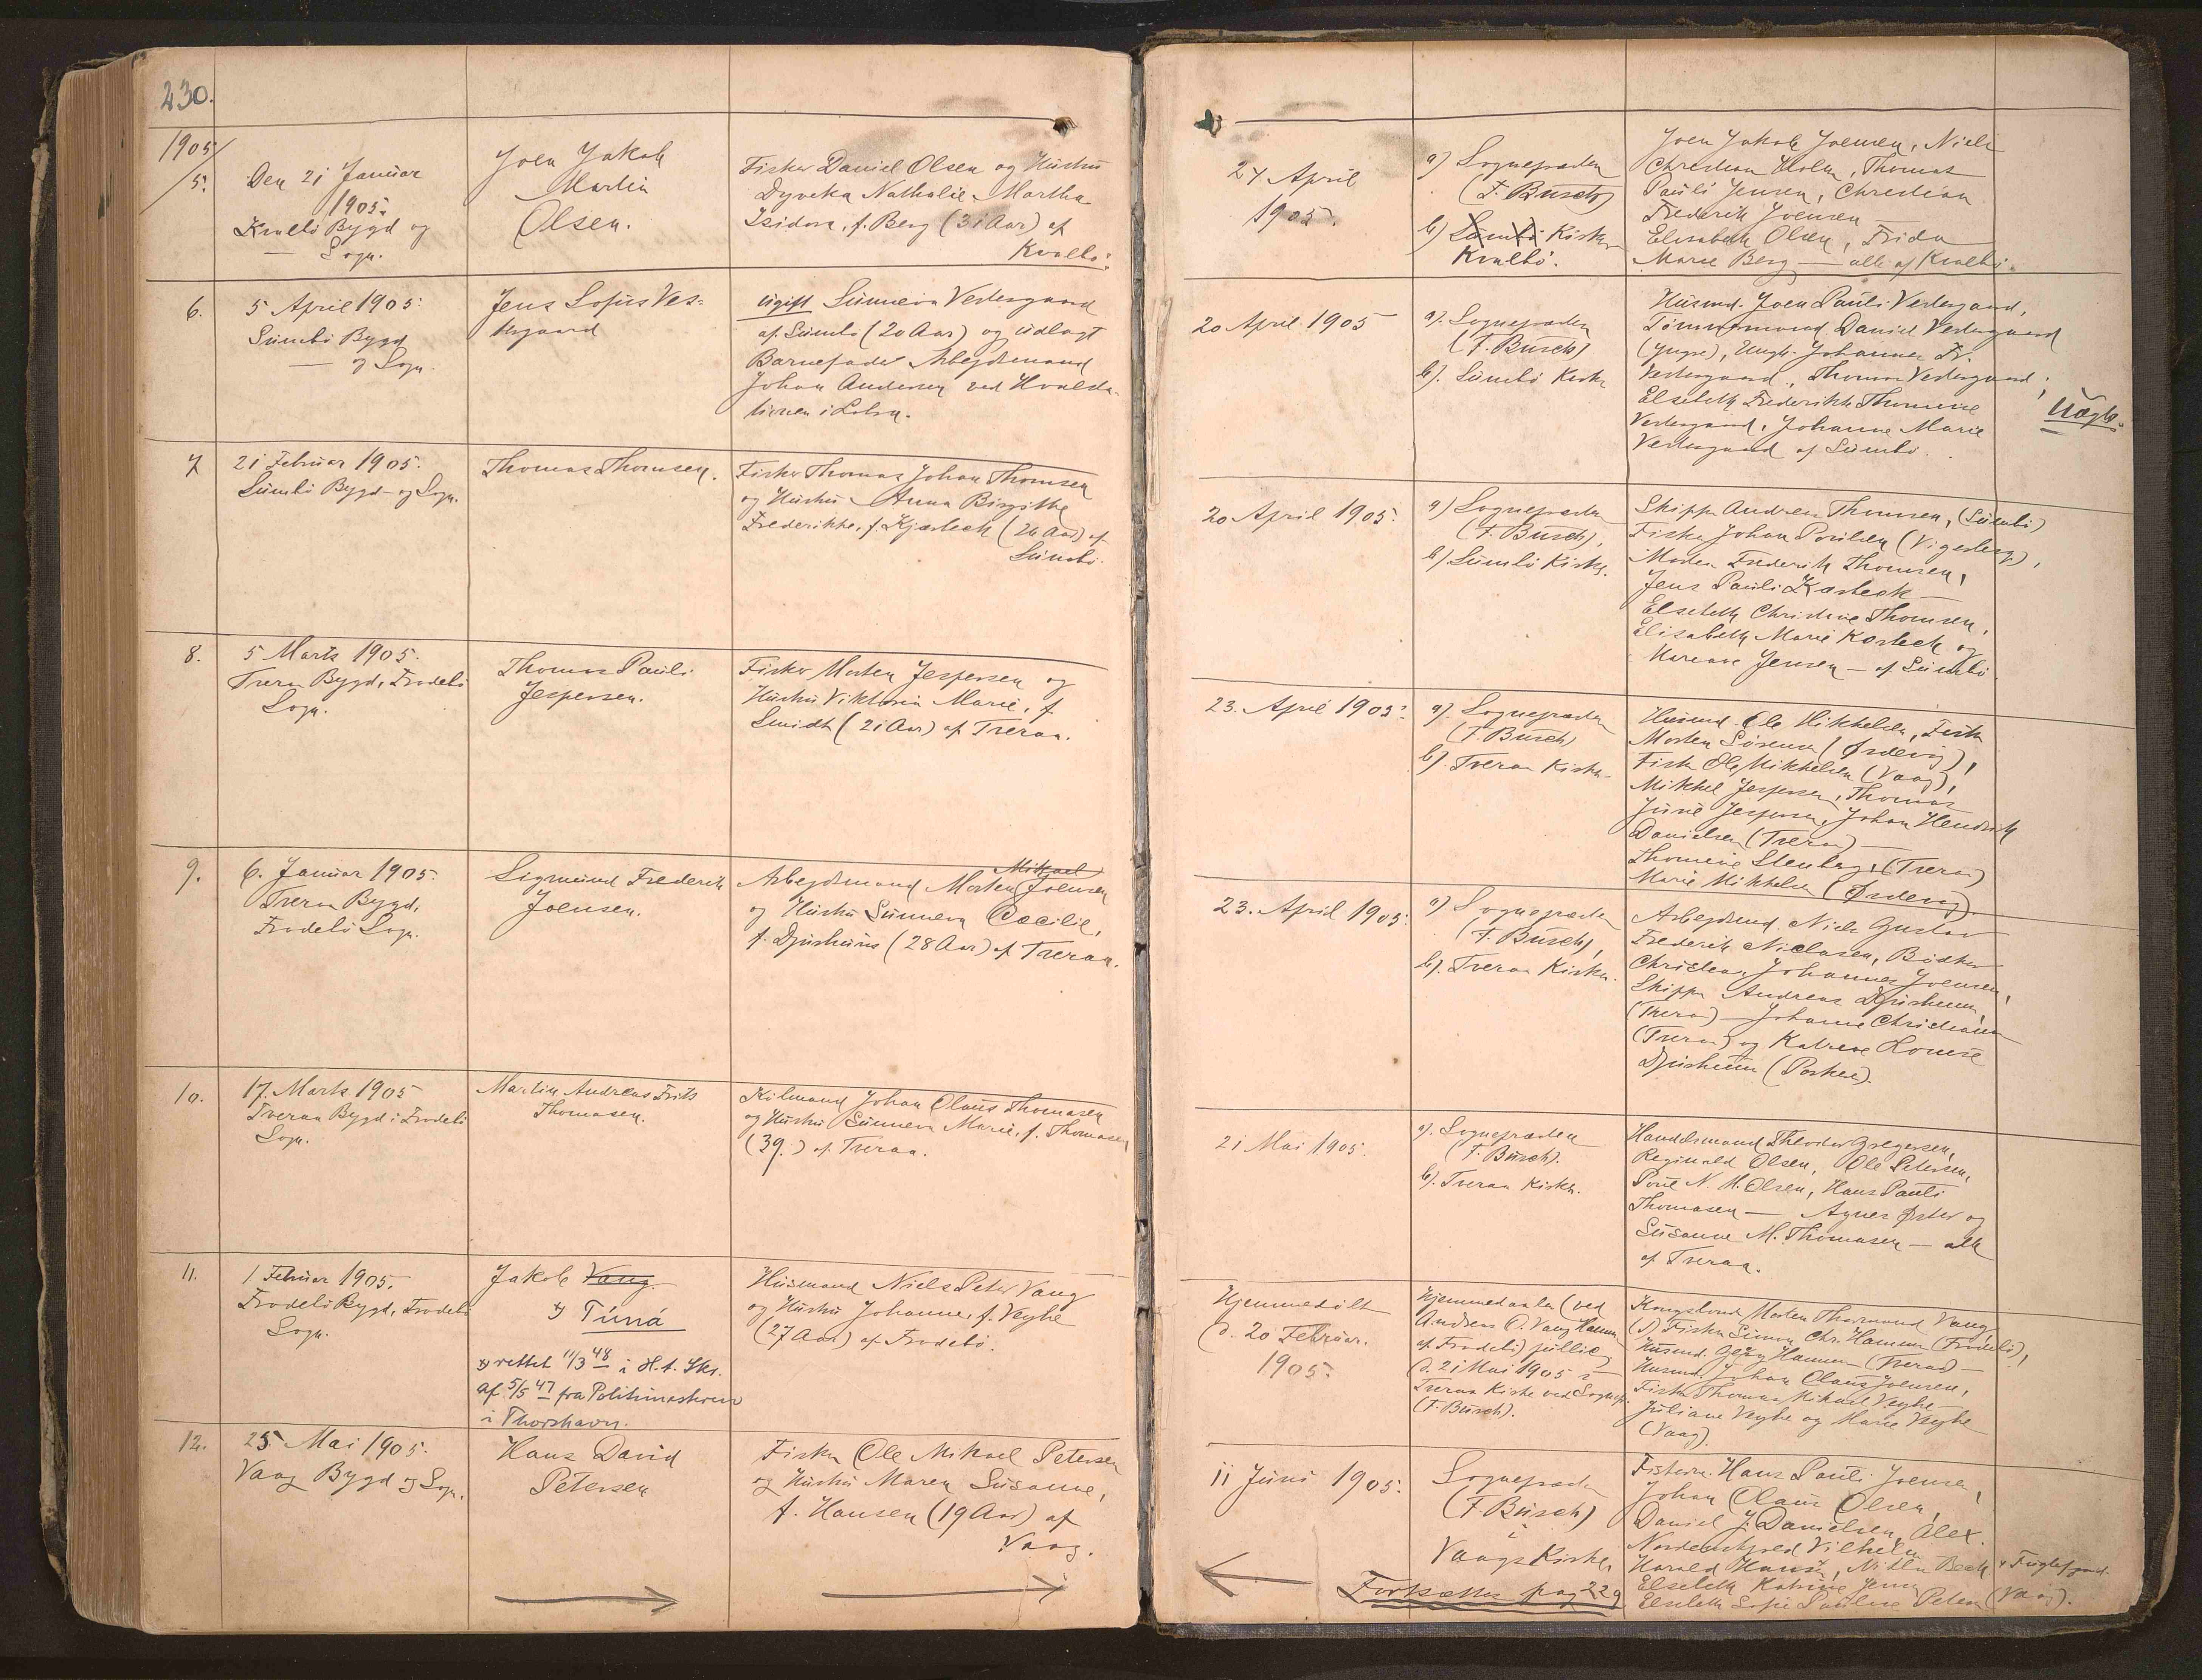 230.
1905/5.
Den 21 Januar
1905.
Kvalbö Bygd og
— Sogn.
Joen Jakob
Martin
Olsen.
Fisker Daniel Olsen og Hustru
Dyveka Nathalie Martha
Isidora, f. Berg (31 Aar) af
Kvalbö.
24 April
1905.
a) Sognepræsten
(F. Busch)
b) Sümbö Kirke
Kvalbö.
Joen Jakob Joensen, Niels
Christian Holm, Thomas
Pauli Jensen, Christian
Frederik Joensen —
Elisabeth Olsen, Frida
Marie Berg — alle af Kvalbö.
6.
5 April 1905.
Sümbö Bygd
— og Sogn.
Jens Sofus Ves=
tergaard
ugift Sünneva Vestergaard
af Sümbö (20 Aar) og udlagt
Barnefader Arbejdsmand
Johan Andersen ved Hvalsta-
tionen i Lobra.
20 April 1905
a). Sognepræsten
(F. Busch)
b). Sümbö Kirke
Husmd. Joen Pauli Vestergaard,
Tømmermand Daniel Vestergaard
(yngre), Ungk. Johannes Fr.
Vestergaard, Thomas Vestergaard,
Elsebeth Frederikke Thomine
Vestergaard, Johanne Marie
Vestergaard af Sümbö.
Uægte.
7
21 Februar 1905.
Sümbö Bygd- og Sogn.
Thomas Thomsen.
Fisker Thomas Johan Thomsen
og Hustru Anna Birgithe
Frederikke, f. Kjærbech (26 Aar) af
Sümbö.
20 April 1905.
a) Sognepræsten
(F. Busch),
b). Sümbö Kirke.
Skipper Andreas Thomsen, (Sümbö)
Fisker Johan Poulsen (Vigerberg),
Morten Frederik Thomsen,
Jens Pauli Kærbech —
Elsebeth Christine Thomsen,
Elisabeth Marie Kærbech og
Mariane Jensen — af Sümbö
8.
5 Marts 1905.
Tveraa Bygd, Frodebö
Sogn.
Thomas Pauli
Jespersen.
Fisker Morten Jespersen og
Hustru Viktoria Marie, f.
Smidt (21 Aar) af Tveraa.
23. April 1905.
a). Sognepræsten
(F. Busch)
b). Tveraa Kirke.
Husmd. Ole Mikkelsen, Fisker
Morten Sørensen (Ørdevig),
Fisker Ole Mikkelsen (Vaag),
Mikkel Jespersen, Thomas
Juul Jespersen, Johan Hendrik
Danielsen (Tveraa) —
Thomine Stenberg, (Tveraa)
Marie Mikkelsen (Ørdevig).
9.
6. Januar 1905.
Tveraa Bygd,
Frodebö Sogn.
Sigmund Frederik
Joensen.
Mikael
Arbejdsmand Morten Joensen
og Hustru Sünneva Cæcilie,
f. Djurhuus (28 Aar) af Tveraa.
23. April 1905.
a) Sognepræsten
(F. Busch),
b). Tveraa Kirke.
Arbejdsmd. Niels Gustav
Frederik Niclasen, Bødker
Christian Johannes Joensen,
Skipper Andreas Djurhuus,
(Tveraa) — Johanne Christiansen
(Tveraa) og Katrine Lovise
Djurhuus (Porkere).
10.
17. Marts 1905
Tveraa Bygd i Frodebö
Sogn.
Martin Andreas Frits
Thomasen.
Kølmand Johan Olaus Thomasen
og Hustru Sünneva Marie, f. Thomasen
(39.) af Tveraa.
21 Mai 1905.
a). Sognepræsten
(F. Busch).
b). Tveraa Kirke.
Handelsmand Theodor Gregersen,
Reginald Olsen, Ole Petersen,
Poul N. M. Olsen, Hans Pauli
Thomasen — Agnes Øster og
Susanne M. Thomasen — alle
af Tveraa.
11.
1 Februar 1905.
Frodebö Bygd, Frodebö
Sogn.
Jakob Vang.
*) Túná
*) rettet 11/3 48 i H. t. Skr.
af 5/5 47 fra Politimesteren
i Thorshavn.
Husmand Niels Peter Vang
og Hustru Johanne, f. Vegbe
(27 Aar) af Frodebö.
Hjemmedöbt
d. 20 Februar.
1905.
Hjemmedøbt (ved
Andreas D. Vang Hansen
af Frodebö) public.
d. 21 Mai 1905 i
Tveraa Kirke ved Sognepr.
(F. Busch).
Kongsbond Morten Thormod Vang,
(1) Fisker Simon Chr. Hansen (Frodebö),
Husmd. Georg Hansen (Tveraa) —
Husmd. Johan Olaus Joensen,
Fisker Thomas Mikael Vegbe —
Juliane Vegbe og Marie Vegbe
(Vaag).
12.
25 Mai 1905.
Vaag Bygd og Sogn.
Hans David
Petersen
Fisker Ole Mikael Petersen
og Hustru Maren Susanne,
f. Hansen (19 Aar) af
Vaag.
11 Juni 1905.
Sognepræsten
(F. Busch)
i
Vaags Kirke
Fiskerne Hans Pauli Joensen,
Johan Olaus Olsen,
Daniel J. Danielsen, Alex.
Vilhelm
Harald Hansen, Beck, Fuglefjord.
Elsebeth Katrine Jensen
Elsebeth Sofie Pauline Petersen (Vaag).
Fortsættes pag 229